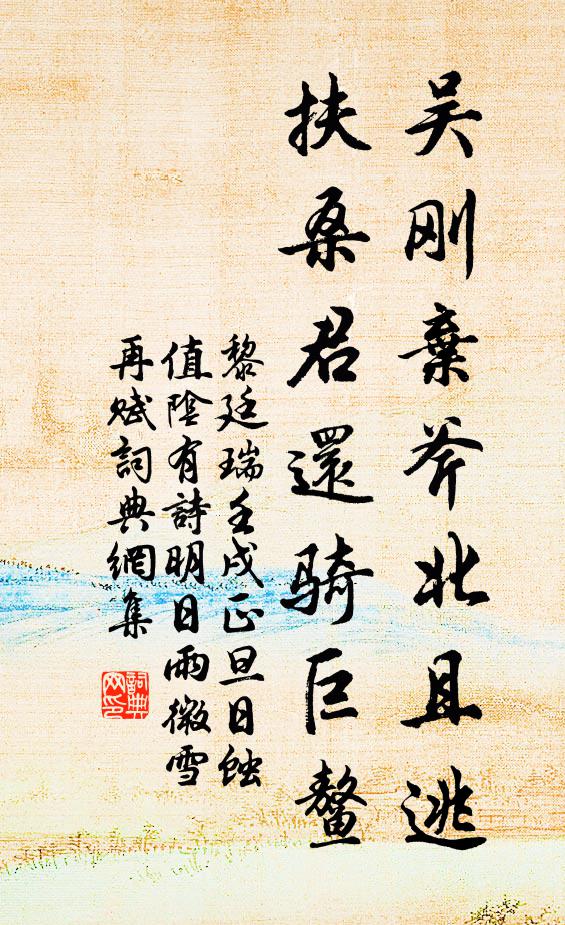 吴刚棄斧北且逃
扶桑君還騎巨鼇
黎廷瑞壬戌正旦日蝕
值陰有詩明日雨微雪
再賦詞典網集
詞典
网印